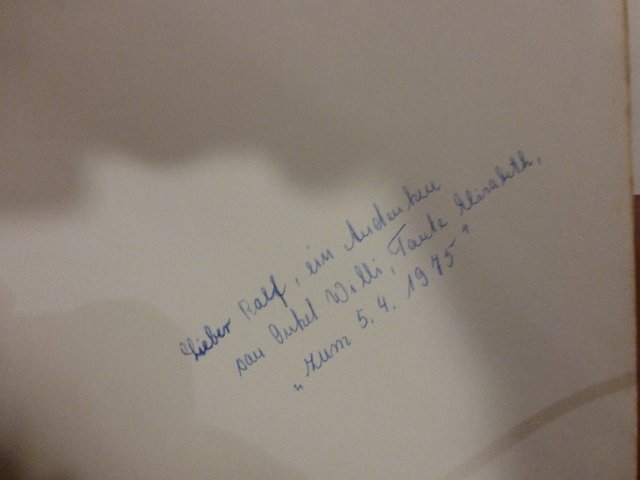 Lieber Ralf, ein Andenken
von Onkel Willi, Tante Elisabeth,
"Zum 5. 4. 1975"